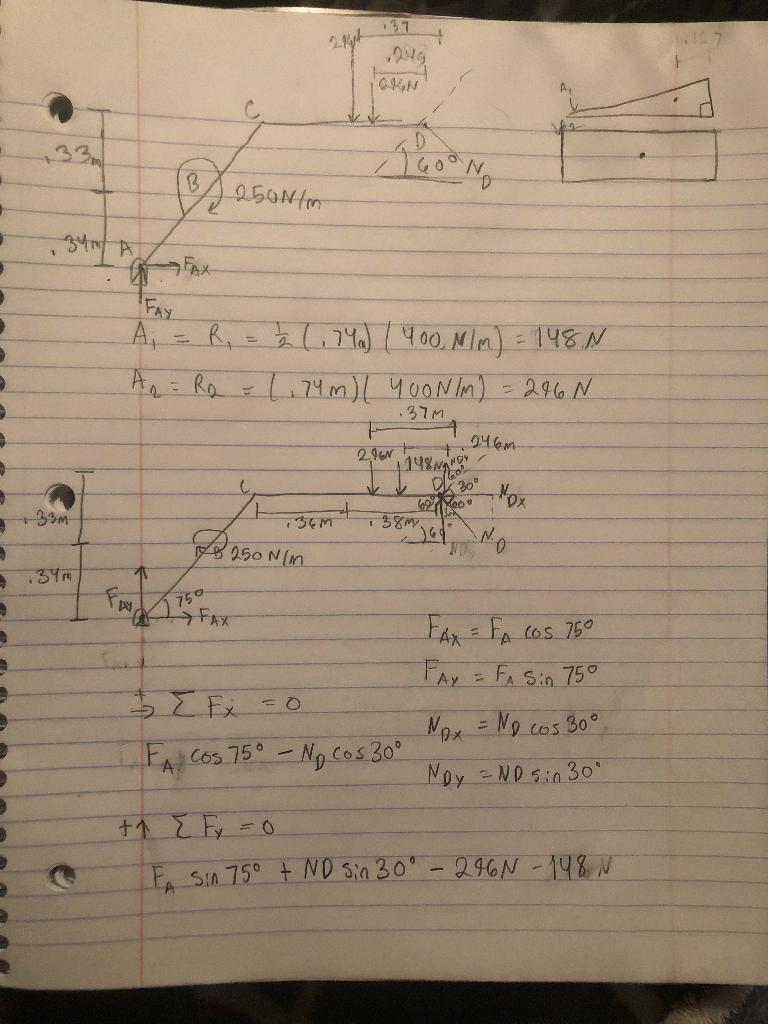 .37
296N
.246
296N
.127
C
A1
A2
D
60° ND
.33m
B
250N/m
.34m
A
FAX
FAY
A1 = R1 = 1/2 (.74m) (400 N/m) = 148 N
A2 = R2 = (.74m)( 400N/m) = 296 N
.37m
.246m
296N
148N
NDY
60°
C
D
30°
NDX
60°
60°
30°
.33m
.36m
.38m
60°
ND
B
250 N/m
.34m
FAY
75°
FAX
FAX = FA cos 75°
FAY = FA sin 75°
+→ Σ Fx = 0
NDX = ND cos 30°
FA cos 75° - ND cos 30°
NDY = ND sin 30°
+↑ Σ Fy = 0
FA sin 75° + ND sin 30° - 296N - 148 N